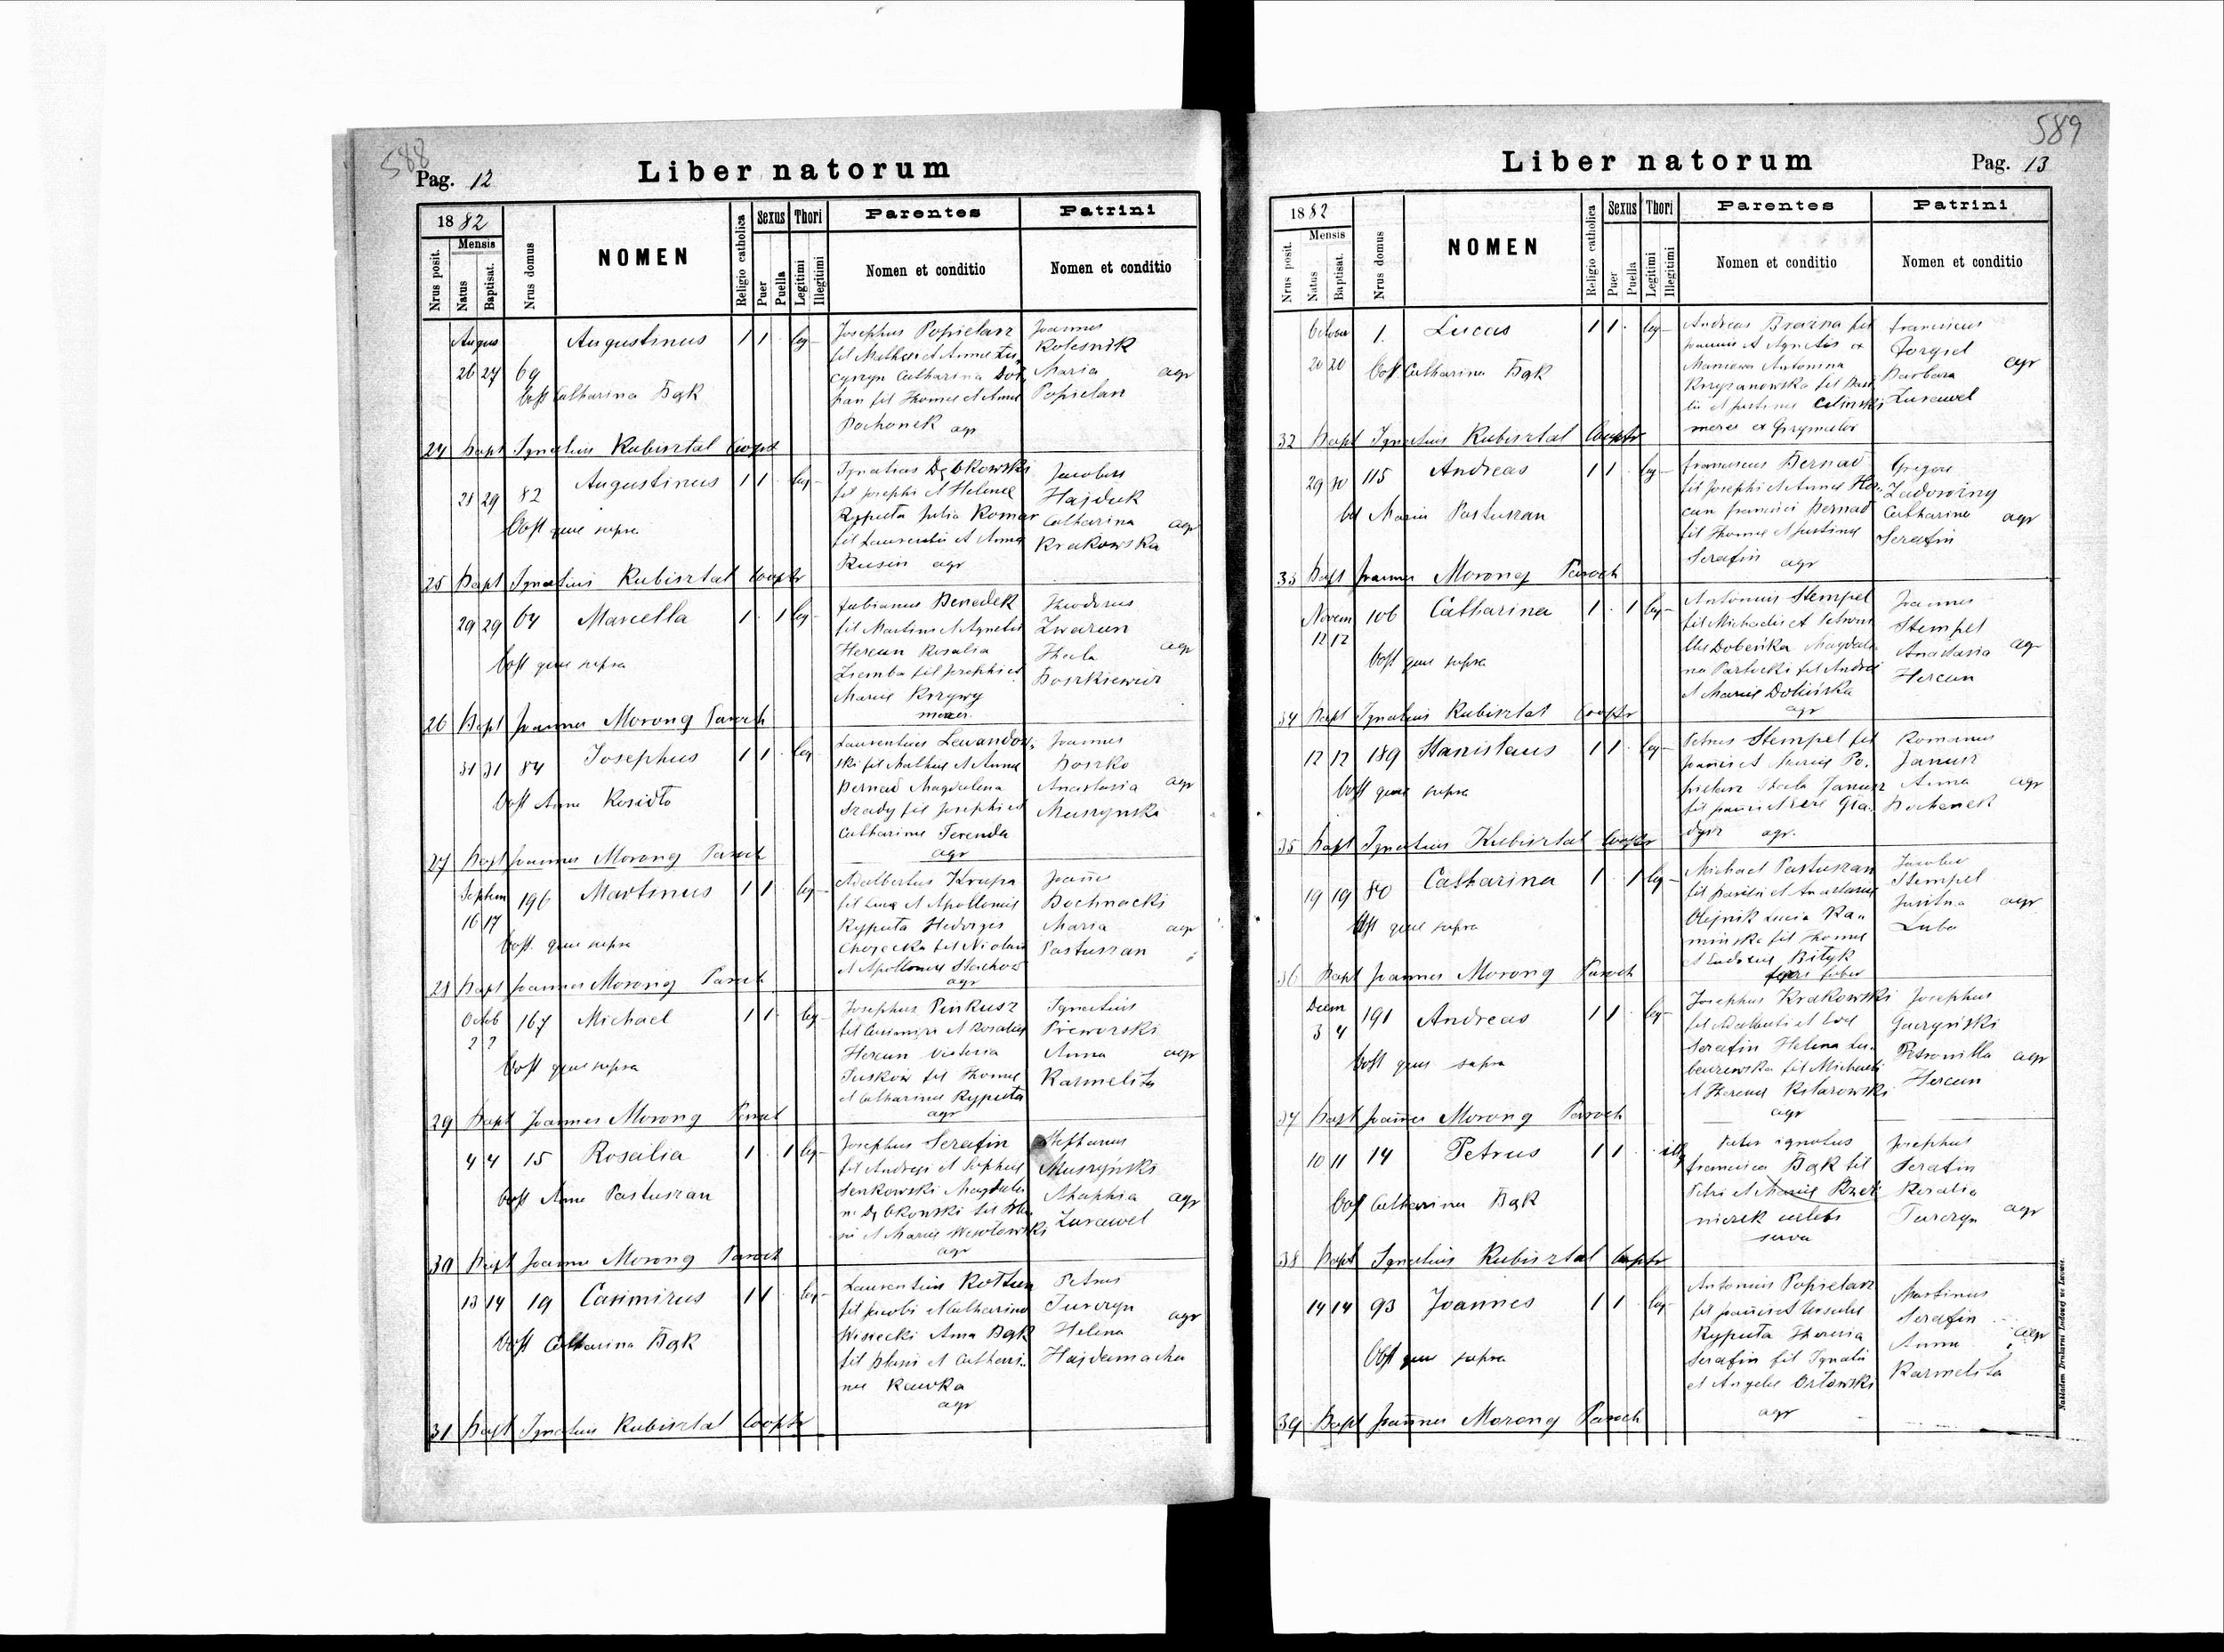 588
Pag. 12
Liber natorum
1882
Mensis
Nrus posit.
Natus
Baptisat.
Nrus domus
NOMEN
Religio catholica
Sexus
Puer
Puella
Thori
Legitimi
Illegitimi
Parentes
Nomen et conditio
Patrini
Nomen et conditio
Augus
26 27 69
Augustinus
1 1 leg
Catharina Bąk
Josephus Popielarz
Catharina
Joannes
Kolesnik
Maria agr
Popielarz
24 Bapt Ignatius Kubisztal Cooptr
28 29 82
Augustinus
1 1 leg
Obst quae supra
Ignatius Dębkowski
fil Josephi et Helenae
Ryputa Julia Roman
fil Laurentii et Annae
Rusin agr
Jacobus
Hajduk
Catharina agr
Krakowska
25 Bapt Ignatius Kubisztal Cooptr
29 29 64
Marcella
1 1 leg
Obst quae supra
Fabianus Benedek
fil Martini et Agnetis
Hercun Rosalia
Ziemba fil Josephi et
Mariae Krzywy
mercer.
Theodorus
Zwarun
Thecla agr
Boszkiewicz
26 Bapt Joannes Morong Paroch
31 31 84
Josephus
1 1 leg
Obst Anna Kosidło
Laurentius Lewandow
ski fil Mathiae et Annae
Bernad Magdalena
Szady fil Josephi et
Catharinae Terenda
agr
Joannes
Boszko
Anastasia agr
Muszynska
27 Bapt Joannes Morong Paroch
Septem
16 17 196
Martinus
1 1 leg
Obst. quae supra
Adalbertus Krupa
fil Lucae et Apolloniae
Ryputa Hedvigis
Chojecka fil Nicolai
et Apolloniae Stachow
agr
Joannes
Bochnacki
Maria agr
Pastuszan
28 Bapt Joannes Morong Paroch
Octob
2 2 167
Michael
1 1 leg
Obst quae supra
Josephus Penkusz
fil Casimiri et Rosaliae
Hercun Victoria
fil Thomae
et Catharinae Ryputa
agr
Ignatius
Preworski
Anna agr
Karmelita
29 Bapt Joannes Morong Paroch
4 4 15
Rosalia
1 1 leg
Obst Anna Pastuszan
Josephus Serafin
fil Andreae et Sophiae
Senkowski Magdale
na Dębkowski fil
et Mariae Wesołowski
agr
Stephanus
Muszyński
agr
Zurawel
30 Bapt Joannes Morong Paroch
13 14 19
Casimirus
1 1 leg
Obst Catharina Bąk
Laurentius Kottun
fil Jacobi et Catharinae
Wisiecki Anna Bąk
fil Blasii et Cathari
nae Kawka
agr
Petrus
Turczyn
Helena agr
Hajdamacha
31 Bapt Ignatius Kubisztal Cooptr
589
Liber natorum
Pag. 13
1882
Mensis
Nrus posit.
Natus
Baptisat.
Nrus domus
NOMEN
Religio catholica
Sexus
Puer
Puella
Thori
Legitimi
Illegitimi
Parentes
Nomen et conditio
Patrini
Nomen et conditio
October
20 20 1.
Lucas
1 1 leg
Obst Catharina Bąk
Andreas fil
Joannis et Agnetis
Antonina
Krzyzanowska fil
et Justinae
Franciscus
agr
Barbara
Zurawel
32 Bapt Ignatius Kubisztal Cooptr
29 30 115
Andreas
1 1 leg
Obst Maria Pastuszan
Franciscus Bernad
fil Josephi et Annae Her
cun Francisci Bernad
fil Thomae et Justinae
Serafin agr
Gregor
Catharina agr
Serafin
33 Bapt Joannes Morong Paroch
Novem
12 12 106
Catharina
1 1 leg
Obst quae supra
Antonius Stempel
fil Michaelis et Petronel
lae Dobeńka Magdale
na Parlocki fil Andreae
et Mariae Dolińska
agr
Joannes
Stempel
Anastasia agr
Hercun
34 Bapt Ignatius Kubisztal Cooptr
12 12 189
Stanislaus
1 1 leg
Obst quae supra
Petrus Stempel fil
Joannis et Mariae Po.
pielarz Thecla Janusz
agr.
Romanus
Janusz
Anna agr
Bochenek
35 Bapt Ignatius Kubisztal Cooptr
19 19 80
Catharina
1 1 leg
Obst quae supra
Michael Pastuszan
fil Joannis et Anastasiae
Olejnik Lucia Ka
minska fil Thomae
et Eudoxiae Bityk
faber
Jacobus
Stempel
Justina agr
Luba
36 Bapt Joannes Morong Paroch
Decem
3 4 191
Andreas
1 1 leg
Obst quae supra
Josephus Krakowski
fil Adalberti et Evae
Serafin Helena Lu
baczewska fil Michaelis
et Theresiae Kolarowski
agr
Josephus
Guczyński
Petronilla agr
Hercun
37 Bapt Joannes Morong Paroch
10 11 14
Petrus
1 1 illeg
Obst Catharina Bąk
Pater ignotus
Francisca Bąk fil
Petri et Mariae
celebs
serva
Josephus
Serafin
Rosalia agr
Turczyn
38 Bapt Ignatius Kubisztal Cooptr
14 14 93
Joannes
1 1 leg
Obst quae supra
Antonius Popielarz
fil Joannis et Ursulae
Ryputa Theresia
Serafin fil Ignatii
et Angelae Orłowski
agr
Martinus
Serafin
Anna agr
Karmelita
39 Bapt Joannes Morong Paroch
Nakładem Drukarni Ludowej we Lwowie.